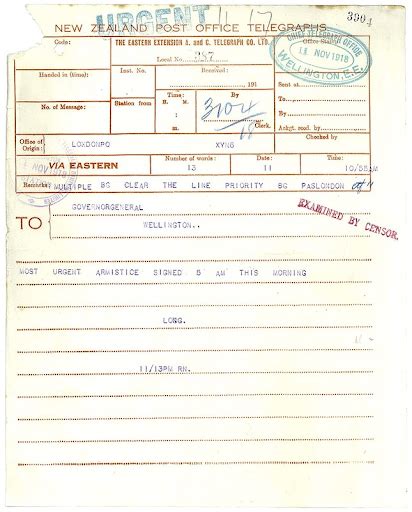 URGENT
3904
NEW ZEALAND POST OFFICE TELEGRAPHS.
Code: THE EASTERN EXTENSION A. and C. TELEGRAPH CO. LTD. Office Stamp.
Local No. 387
CHIEF TELEGRAPH OFFICE
11 NOV 1918
WELLINGTON, E.E.
Handed in (time): Inst. No. Received: 191 Sent at
No. of Message: Station from Time: By To
H. M. By
m. Clerk. Ackgt. recd. by
18
Office of Origin: LONDONPO XYN6 Checked by
VIA EASTERN Number of words: Date: Time:
13 11 10/55AM
NOV 1918
Remarks: MULTIPLE BG CLEAR THE LINE PRIORITY BG PASLONDON
TO GOVERNORGENERAL
WELLINGTON..
EXAMINED BY CENSOR.
MOST URGENT ARMISTICE SIGNED 5 AM THIS MORNING
LONG.
11/13PM RN.